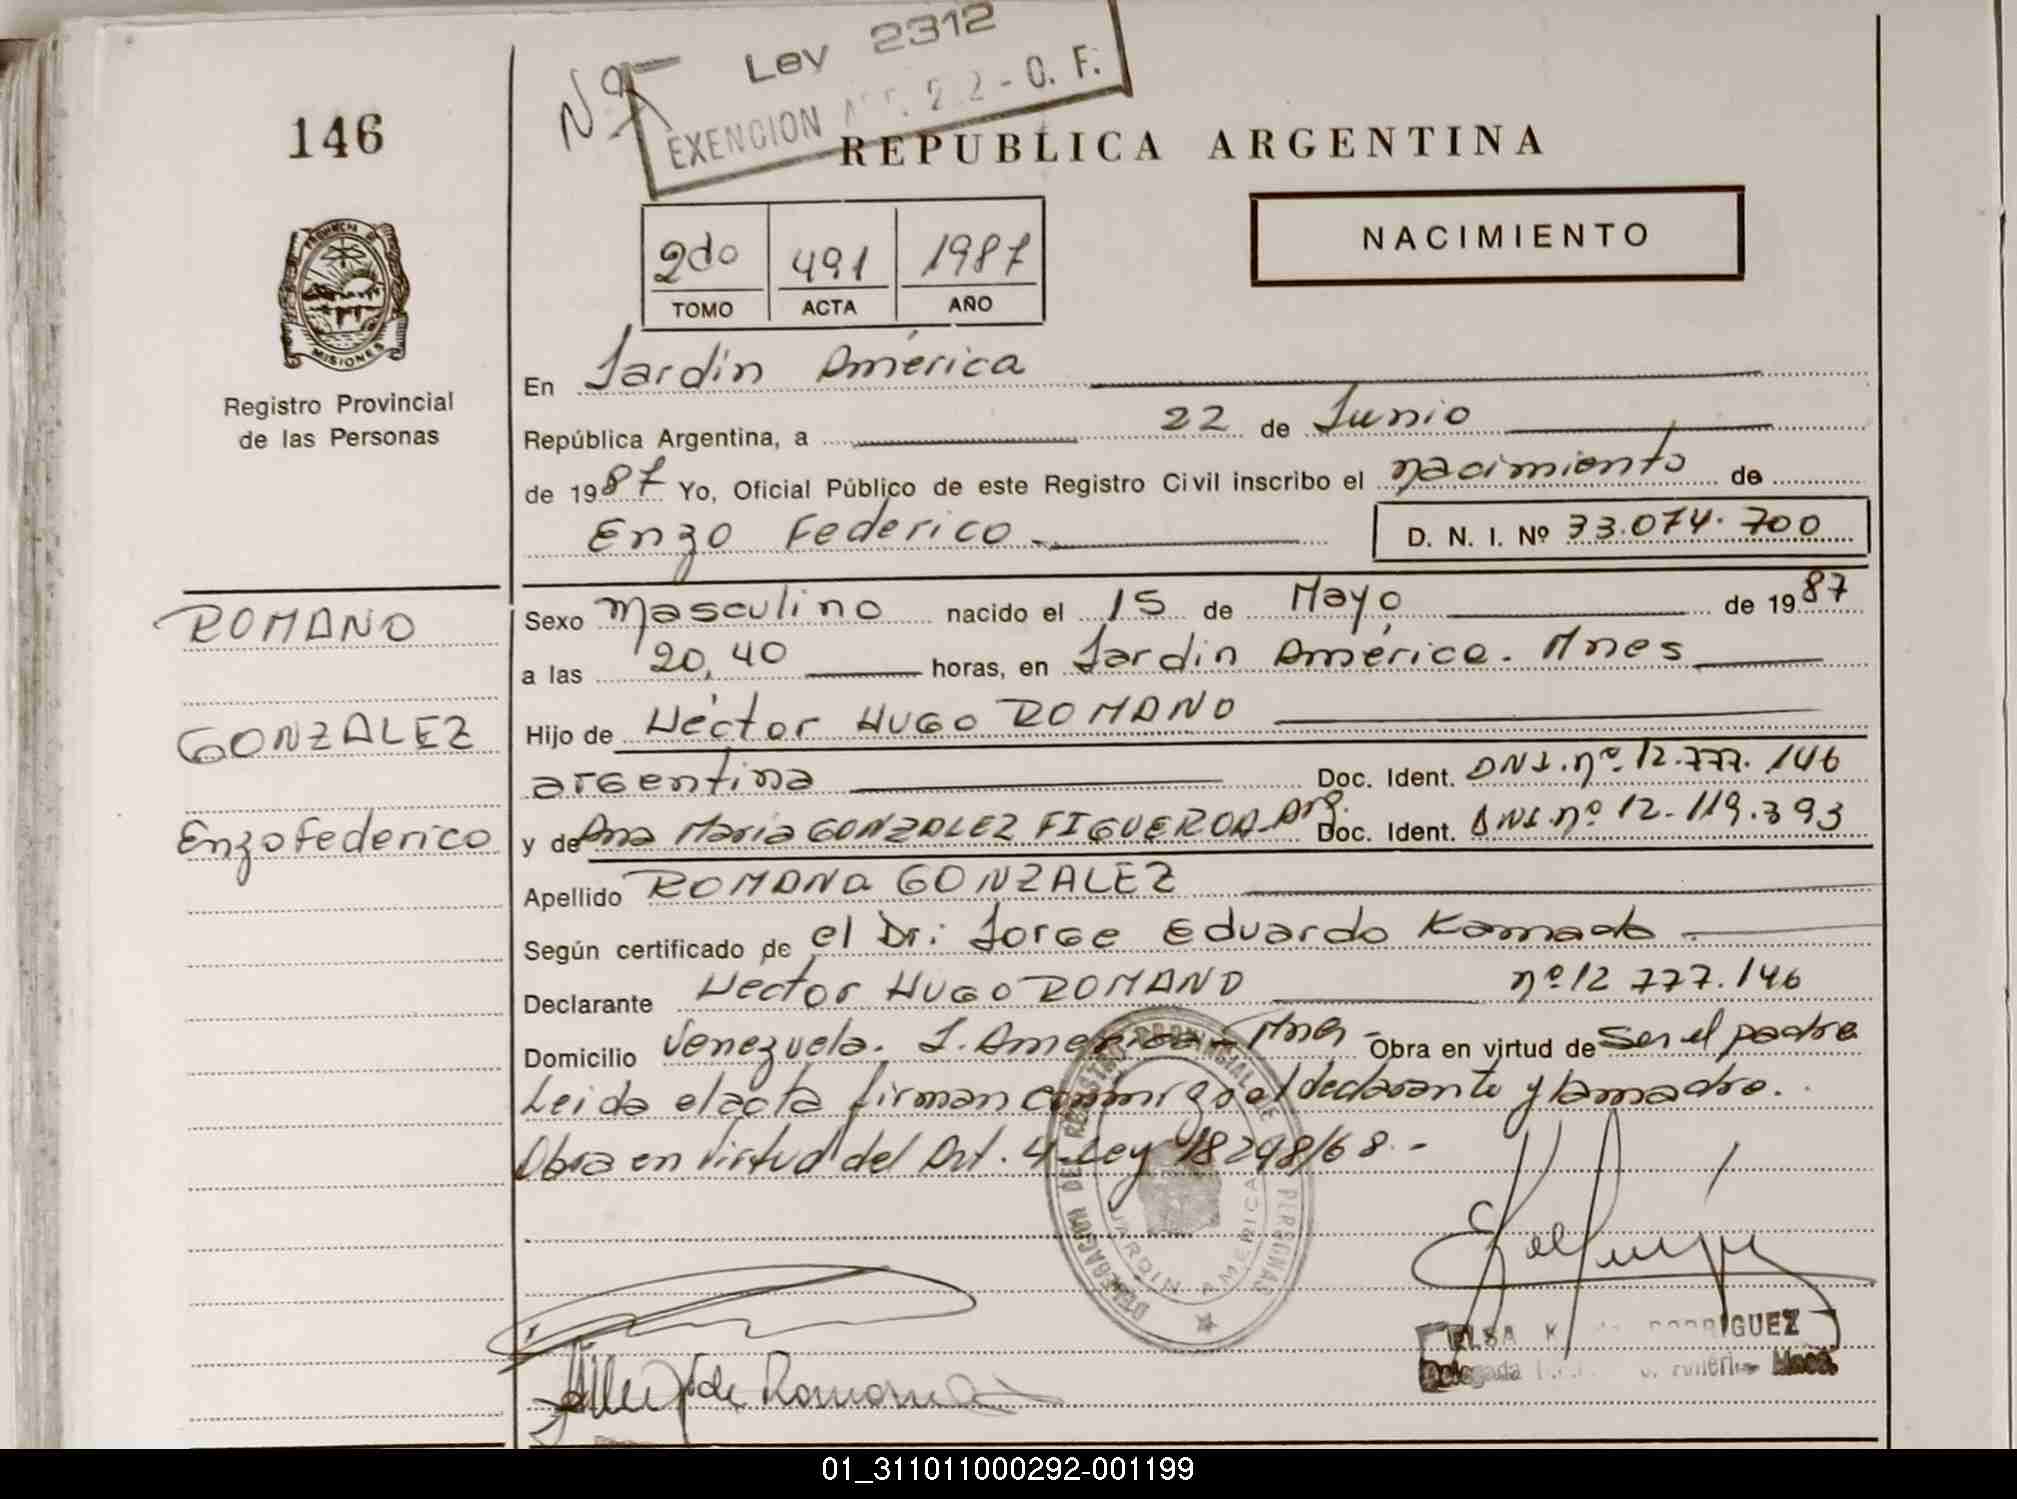 Nº Ley 2312
EXENCION
146
REPUBLICA ARGENTINA
NACIMIENTO
2do 491 1987
TOMO ACTA AÑO
PROVINCIA DE
MISIONES
Registro Provincial
de las Personas
En Jardín América
República Argentina, a 22 de Junio
de 1987 Yo, Oficial Público de este Registro Civil inscribo el nacimiento de
Enzo Federico D. N. I. Nº 33.074.700
ROMANO
GONZALEZ
Enzo Federico
Sexo Masculino nacido el 15 de Mayo de 1987
a las 20,40 horas, en Jardín América. Mnes
Hijo de Héctor HUGO ROMANO
argentina Doc. Ident. DNI. nº 12.777.146
y de Ana María GONZALEZ FIGUEROA-Arg. Doc. Ident. DNI. nº 12.119.393
Apellido ROMANO GONZALEZ
Según certificado de el Dr: Jorge Eduardo
Declarante Hector HUGO ROMANO nº 12 777.146
Domicilio Venezuela. J. America - Mnes - Obra en virtud de ser el padre
Leida el acta firman conmigo el declarante y la madre.
Obra en virtud del Art. 4 Ley 18248/68.-
DELEGACION DEL REGISTRO PROVINCIAL DE PERSONAS
JARDIN AMERICA
de Romano
ELSA RODRIGUEZ
Delegada Mnes.
01_311011000292-001199